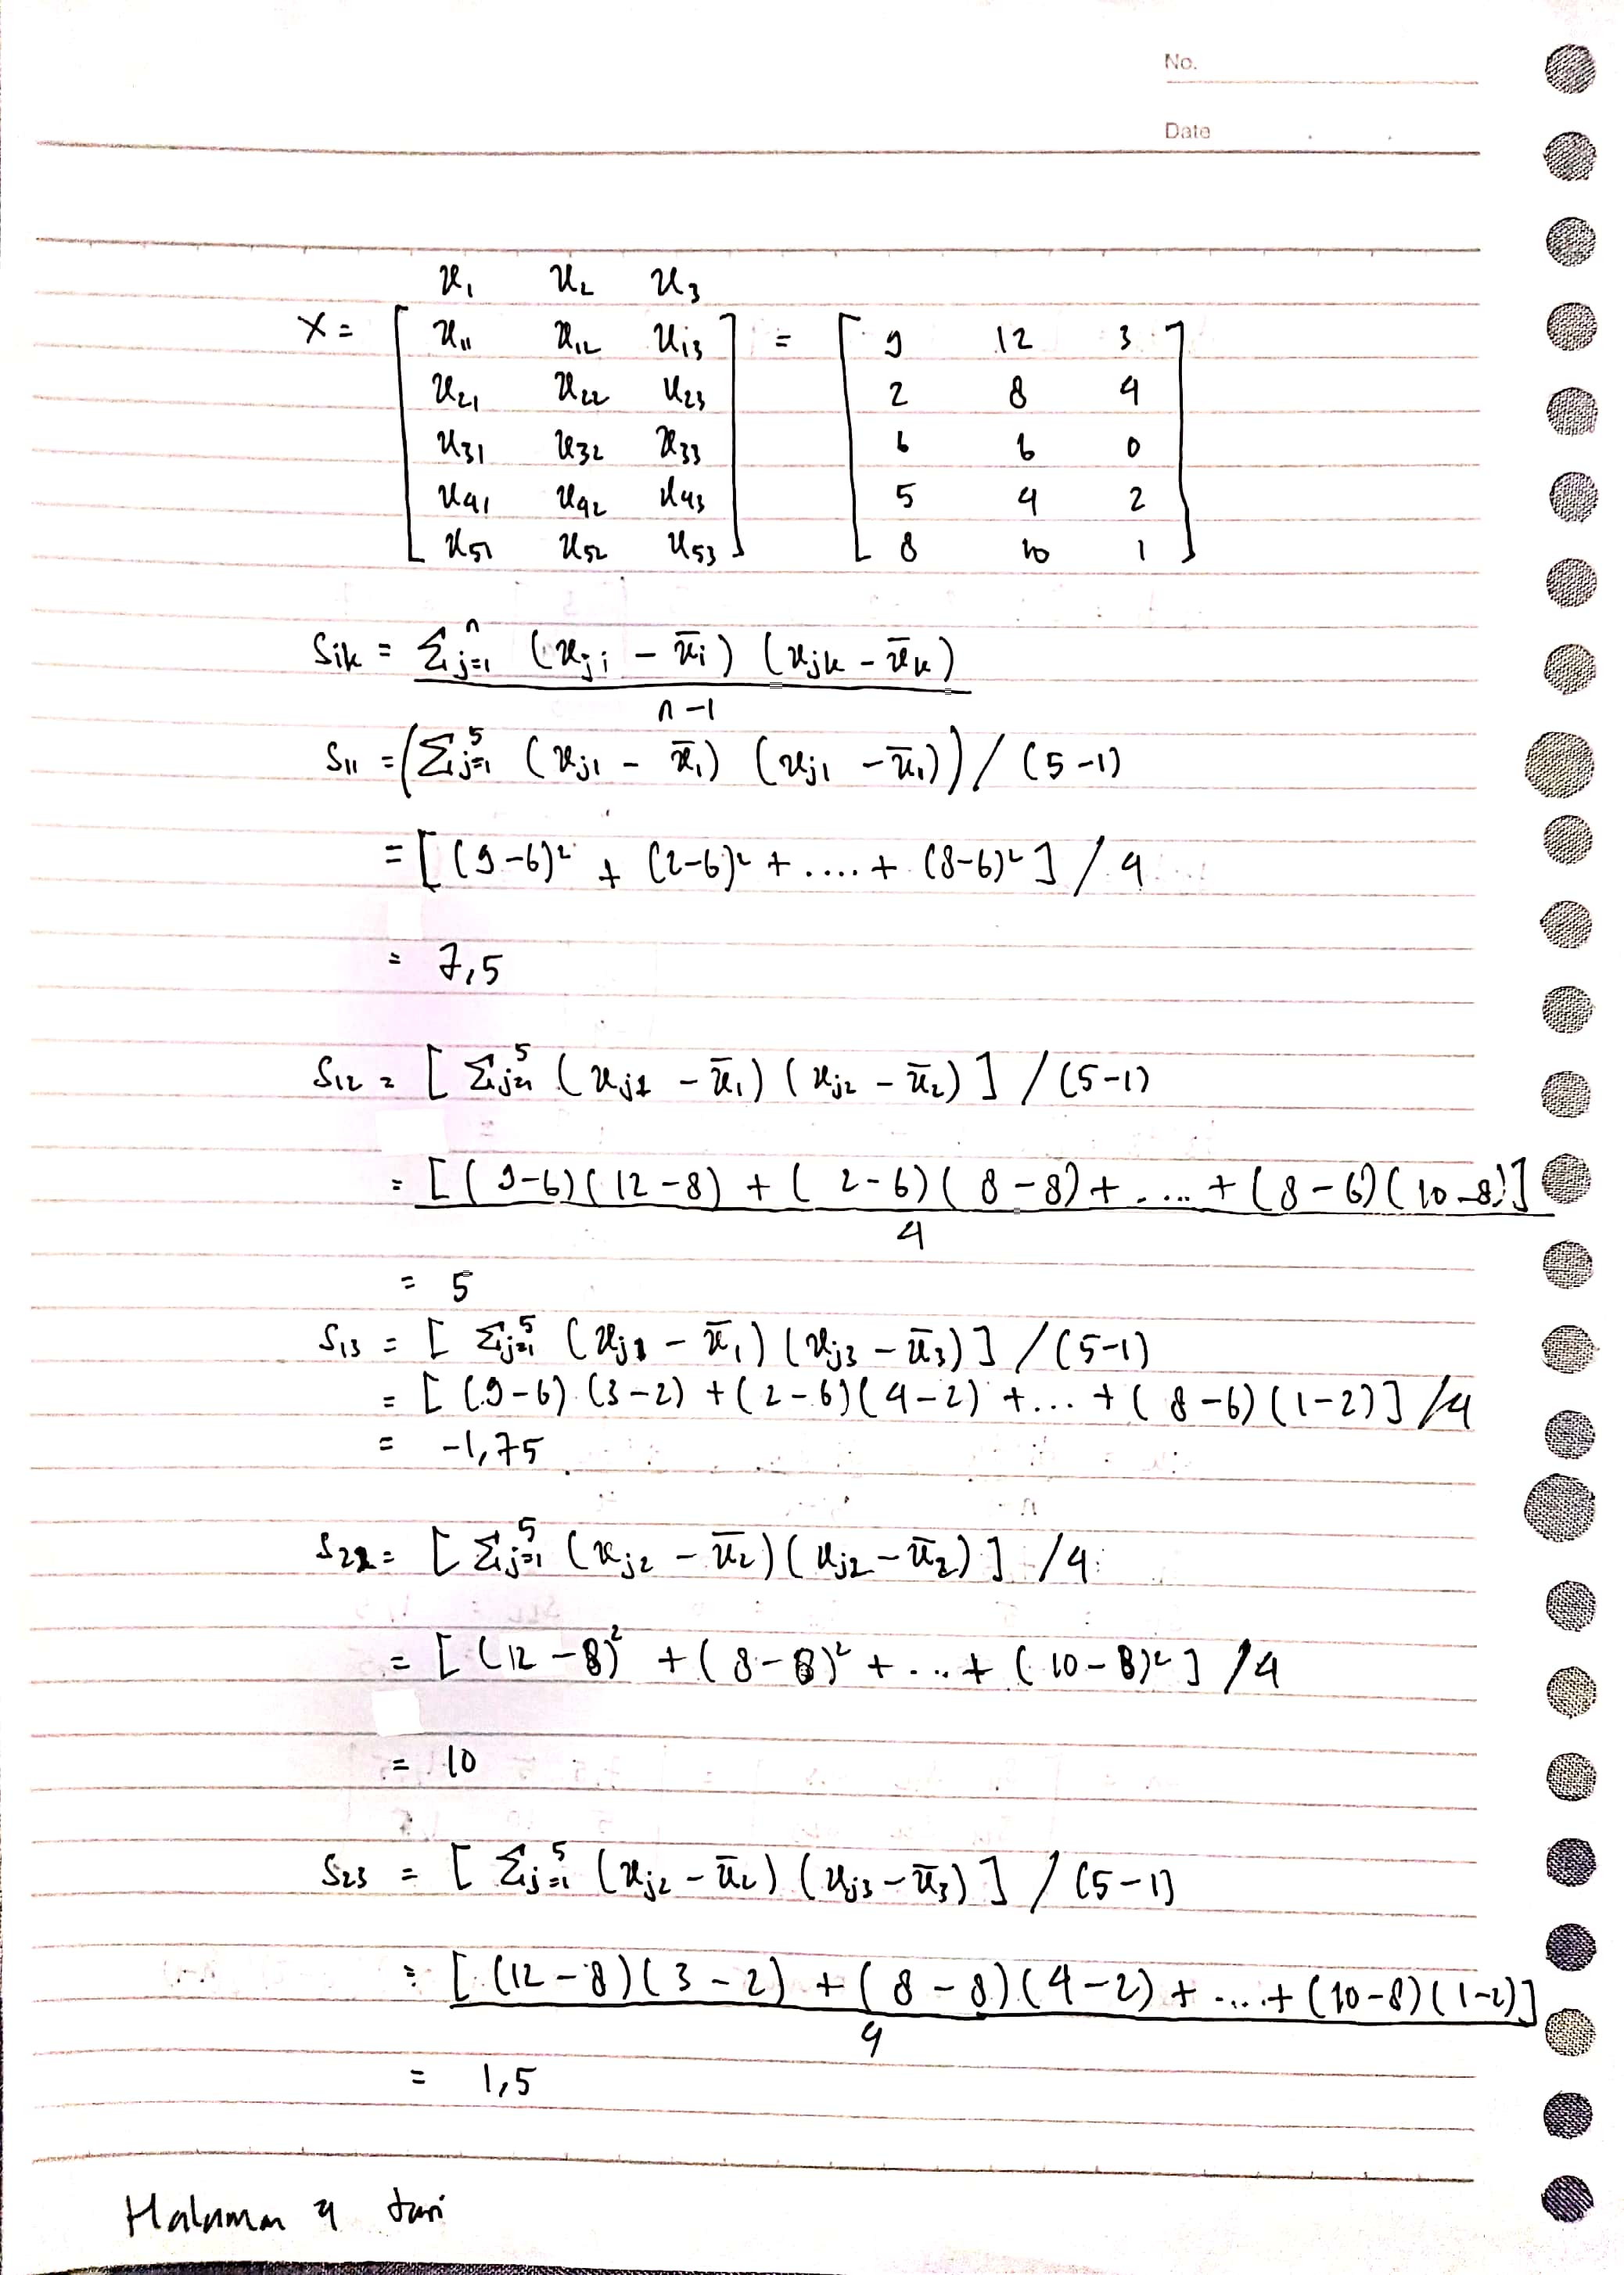 No.
Date
x₁ x₂ x₃
X = [ x₁₁ x₁₂ x₁₃ ] = [ 9 12 3 ]
x₂₁ x₂₂ x₂₃ 2 8 4
x₃₁ x₃₂ x₃₃ 6 6 0
x₄₁ x₄₂ x₄₃ 5 4 2
x₅₁ x₅₂ x₅₃ 8 10 1
Sik = Σj=1ⁿ (xji - x̄i) (xjk - x̄k)
n-1
S₁₁ = (Σj=1⁵ (xj1 - x̄₁) (xj1 - x̄₁)) / (5-1)
= [ (9-6)² + (2-6)² + .... + (8-6)² ] / 4
= 7,5
S₁₂ = [ Σj=1⁵ (xj1 - x̄₁) (xj2 - x̄₂) ] / (5-1)
= [ (9-6)(12-8) + (2-6)(8-8) + .... + (8-6)(10-8) ]
4
= 5
S₁₃ = [ Σj=1⁵ (xj1 - x̄₁) (xj3 - x̄₃) ] / (5-1)
= [ (9-6) (3-2) + (2-6)(4-2) + ... + (8-6)(1-2) ] /4
= -1,75
S₂₂ = [ Σj=1⁵ (xj2 - x̄₂) (xj2 - x̄₂) ] /4
= [ (12-8)² + (8-8)² + ... + (10-8)² ] /4
= 10
S₂₃ = [ Σj=1⁵ (xj2 - x̄₂) (xj3 - x̄₃) ] / (5-1)
= [ (12-8)(3-2) + (8-8)(4-2) + .... + (10-8)(1-2) ]
4
= 1,5
Halaman 4 dari